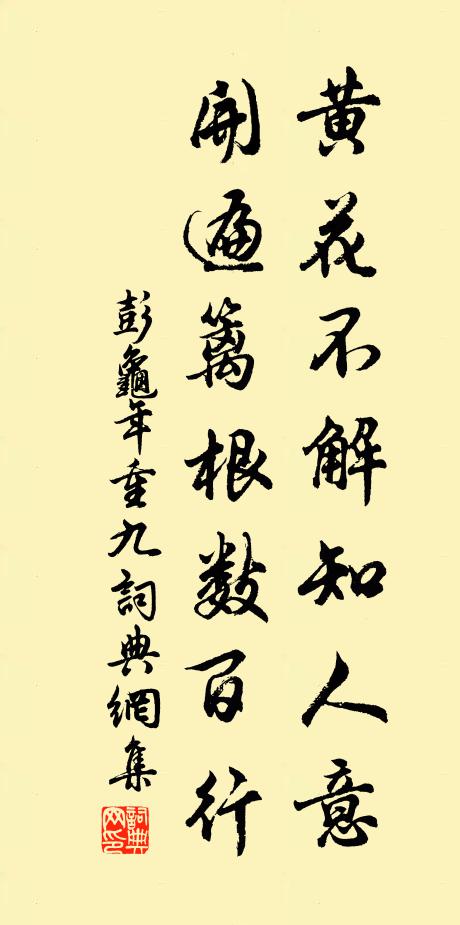 黄花不解知人意
開遍籬根數百行
彭龜年重九詞典網集
詞典網印